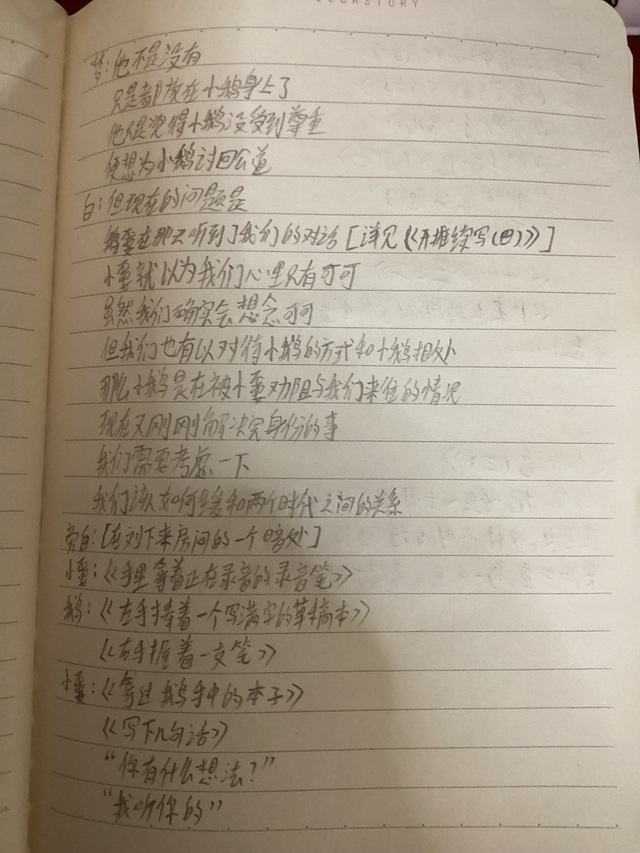 STORY
梦：他不是没有
只是都放在小鹅身上了
他只是觉得小鹅没受到尊重
便想为小鹅讨回公道
白：但现在的问题是
鹅蛋在那天听到了我们的对话［详见《开摊续写（四）》］
小蛋就以为我们心里只有可可
虽然我们确实会想念可可
但我们也有以对待小鹅的方式和小鹅相处
那么小鹅是在被小蛋劝阻与我们来往的情况
现在又刚刚解决完身份的事
我们需要考虑一下
我们该如何缓和两个时代之间的关系
旁白：［在刘下来房间的一个暗处］
小蛋：《手里拿着正在录音的录音笔》
鹅：《左手持着一个写满字的草稿本》
《右手握着一支笔》
小蛋：《拿过鹅手中的本子》
《写下几句话》
“你有什么想法？”
“我听你的”